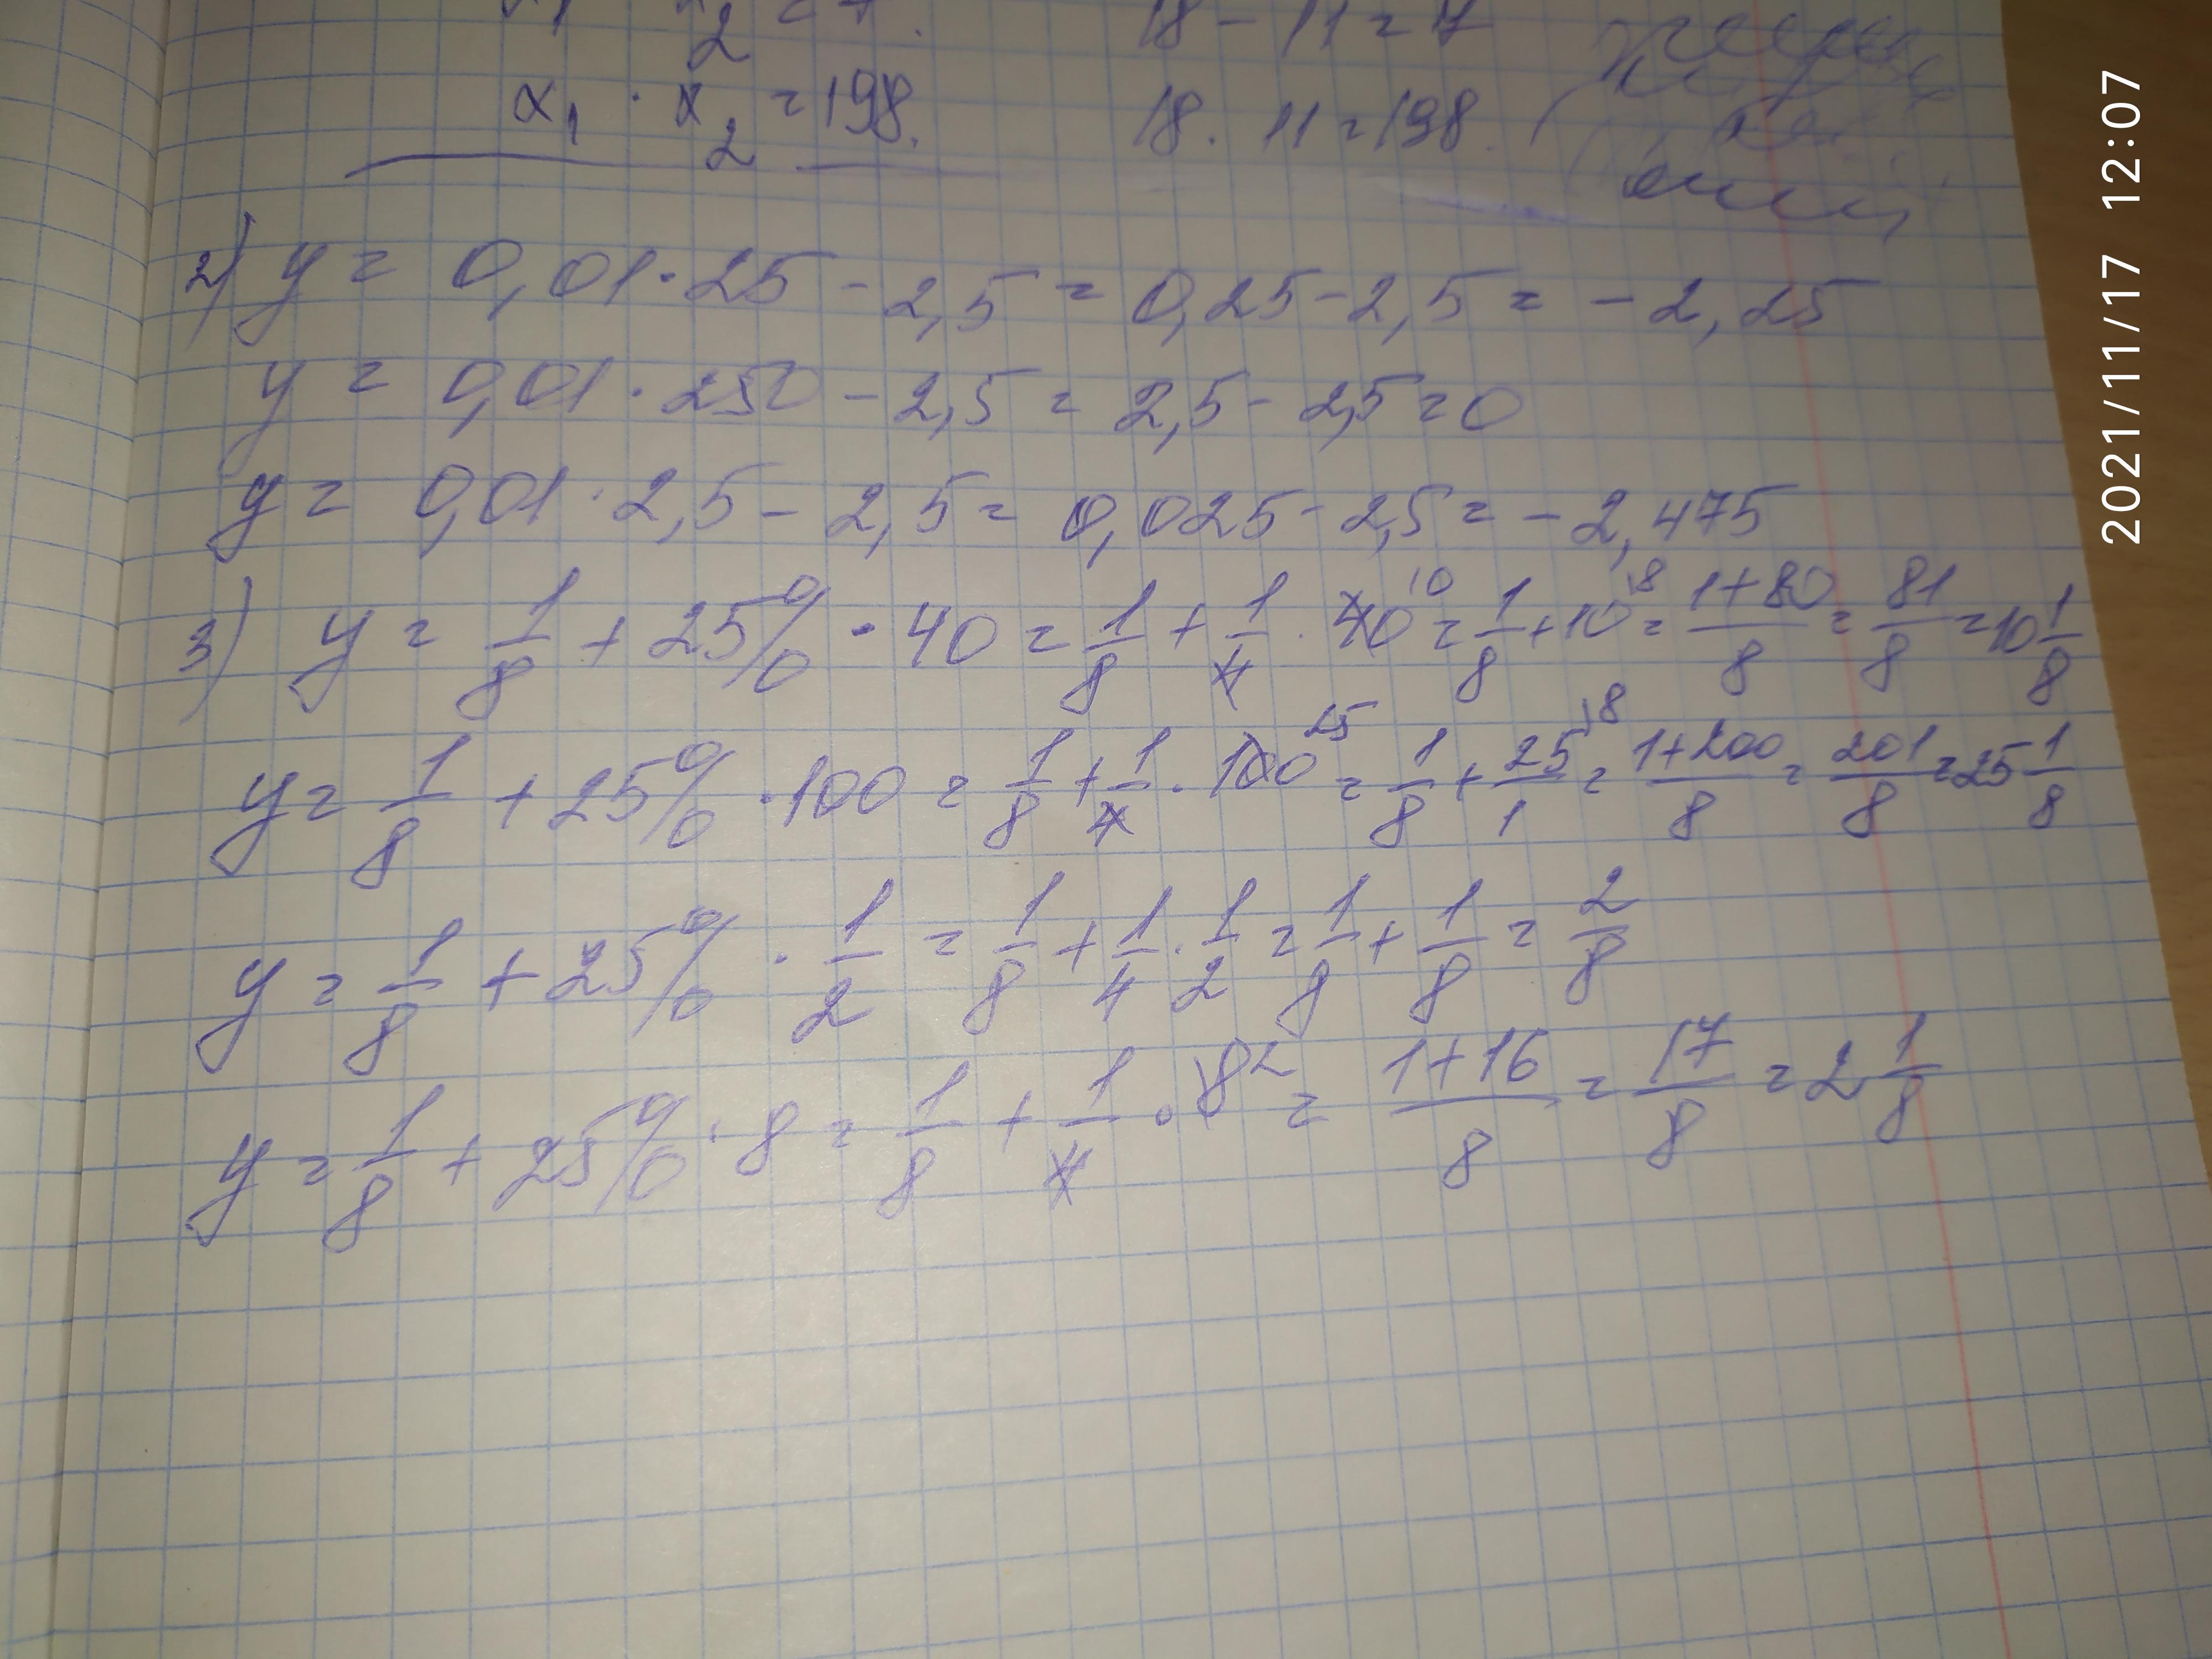 x₁ · x₂ = 198. 18 · 11 = 198.
18 - 11 = 7
2) y = 0,01 · 25 - 2,5 = 0,25 - 2,5 = - 2,25
y = 0,01 · 250 - 2,5 = 2,5 - 2,5 = 0
y = 0,01 · 2,5 - 2,5 = 0,025 - 2,5 = - 2,475
3) y = 1/8 + 25% · 40 = 1/8 + 1/4 · 40 10 = 1/8 + 10 \8 = (1+80)/8 = 81/8 = 10 1/8
y = 1/8 + 25% · 100 = 1/8 + 1/4 · 100 25 = 1/8 + 25/1 \8 = (1+200)/8 = 201/8 = 25 1/8
y = 1/8 + 25% · 1/2 = 1/8 + 1/4 · 1/2 = 1/8 + 1/8 = 2/8
y = 1/8 + 25% · 8 = 1/8 + 1/4 · 8 2 = (1+16)/8 = 17/8 = 2 1/8
2021/11/17 12:07